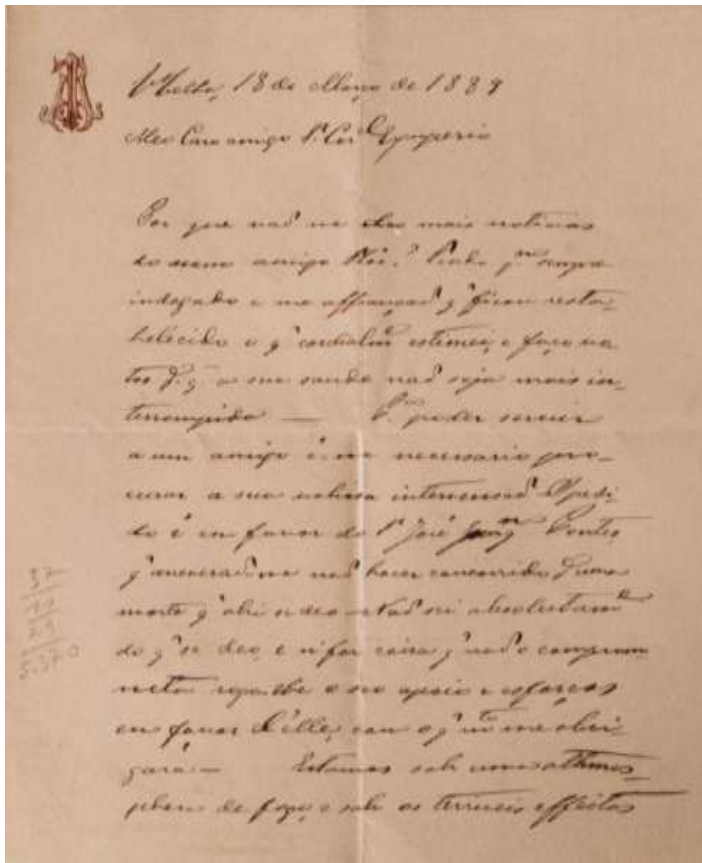 18 de Março de 1889
Meo Caro amigo Sr. Cor.el
Por que naõ me das mais noticias
ao seu amigo tenho sempre
indagado e me affiançaõ q' ficou resta-
belecido o q' cordialm.e estimei, e faço vo-
tos p.a q' a sua saude naõ seja mais in-
terrompida — P.a poder servir
a um amigo é-me necessario pro-
curar a sua valiosa intercessaõ. O pedi-
do é em favor do Sr. José Pontes,
q' naõ haver concorrido p.a uma
morte q' ahi se deo. Naõ sei absolutam.e
do q' se deo, e si for coisa q' naõ o comprom-
meta rogo-lhe o seo apoio e esforços
em favor d'elle, com o q' m.to me obri-
gará — Estamos sob uma athmos-
phera de fogo, e sob os terriveis effeitos
37
5.370